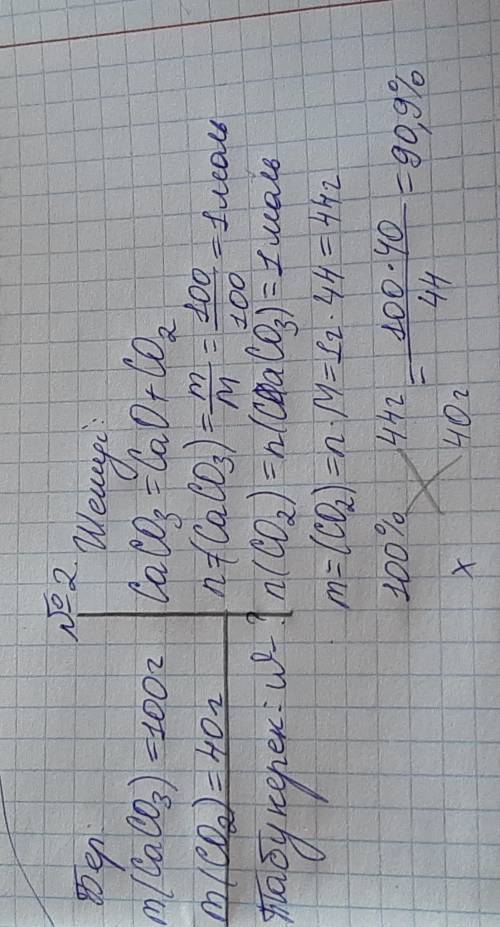 №2
Бер
m(CaCO₃) = 100г
m(CO₂) = 40г
Табу керек: W-?
Шешуі:
CaCO₃ = CaO + CO₂
n=(CaCO₃) = m/M = 100/100 = 1 моль
n(CO₂) = n(CaCO₃) = 1 моль
m=(CO₂) = n·M = 1г·44 = 44г
100% 44г
x 40г
= 100·40/44 = 90,9%